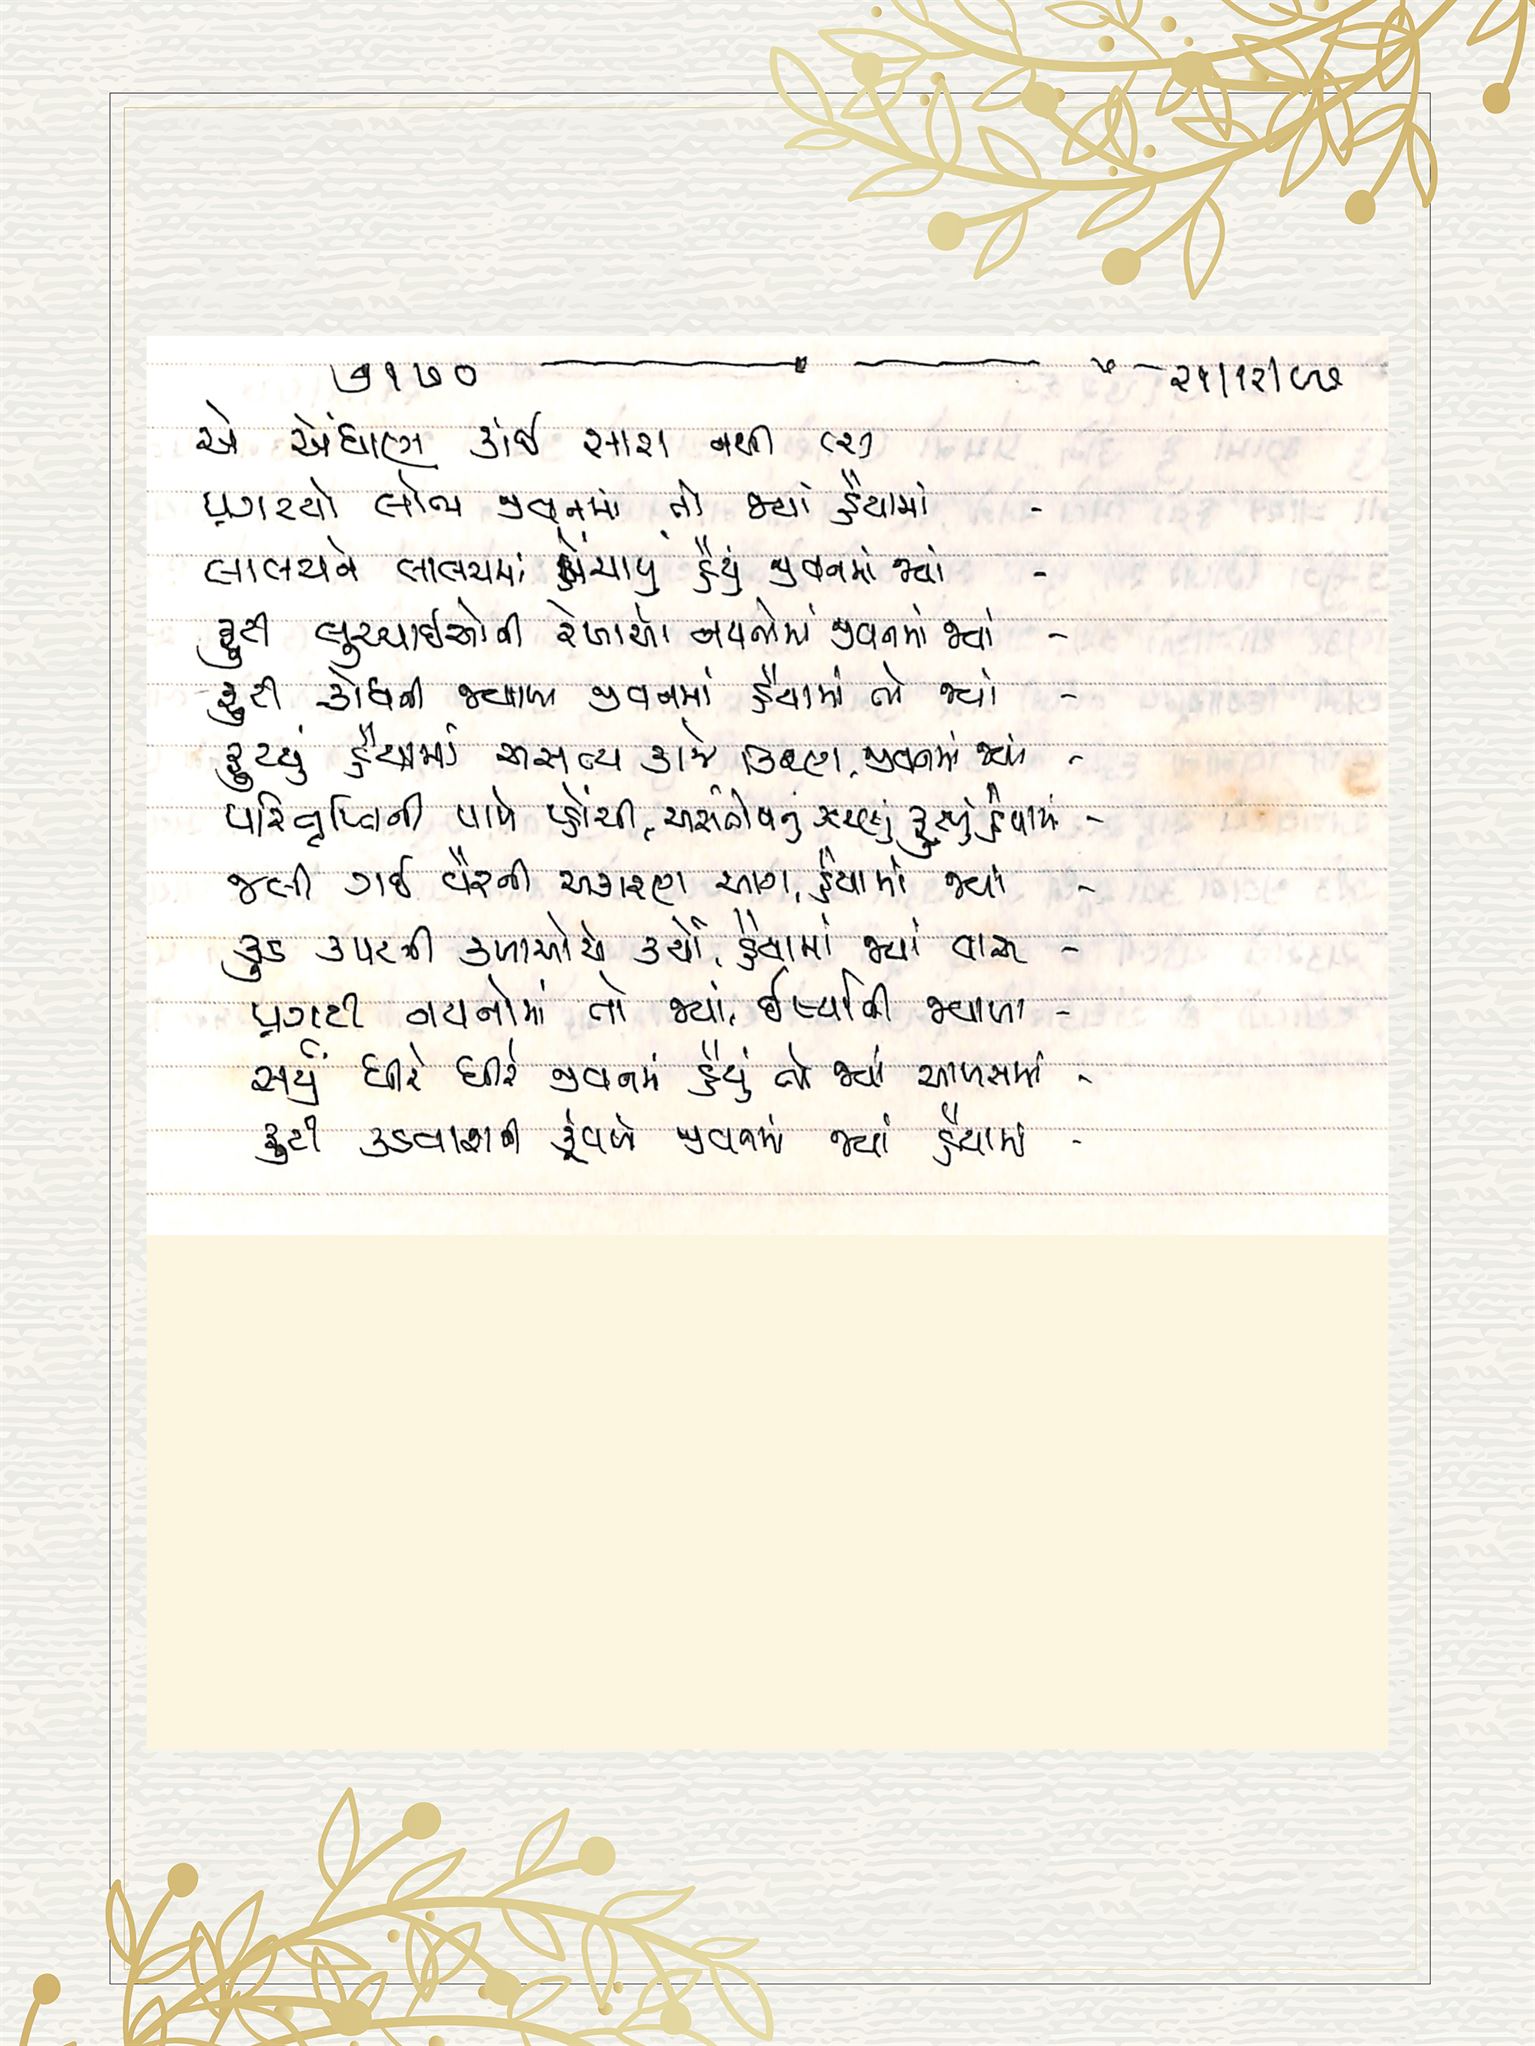 ૭૧૭૦ ૨૧/૧૨/૯૭
એ એંધાણ કાંઈ સારા નથી (૨)
પ્રગટયો લોભ જીવનમાં તો જ્યાં હૈયામાં -
લાલચને લાલચમાં ખેંચાયું હૈયું જીવનમાં જ્યાં -
ફુટી લુચ્ચાઈઓની રેખાઓ નયનોમાં જીવનમાં જ્યાં -
ફુટી ક્રોધની જ્વાળા જીવનમાં હૈયામાં તો જ્યાં -
ફુટયું હૈયામાં અસત્ય કાજે કિરણ, જીવનમાં જ્યાં -
પરિતૃપ્તિની પાળે પ્હોંચી, અસંતોષનું ઝરણું ફુટયું હૈયામાં -
જલી ગઈ વૈરની અકારણ આગ, હૈયામાં જ્યાં -
કુડ કપટની કળાઓએ કર્યો, હૈયામાં જ્યાં વાસ -
પ્રગટી નયનોમાં તો જ્યાં, ઈર્ષ્યાની જ્વાળા -
સર્યું ધીરે ધીરે જીવનમાં હૈયું તો જ્યાં આળસમાં -
ફુટી કડવાશની કૂંપળો જીવનમાં જ્યાં હૈયામાં -